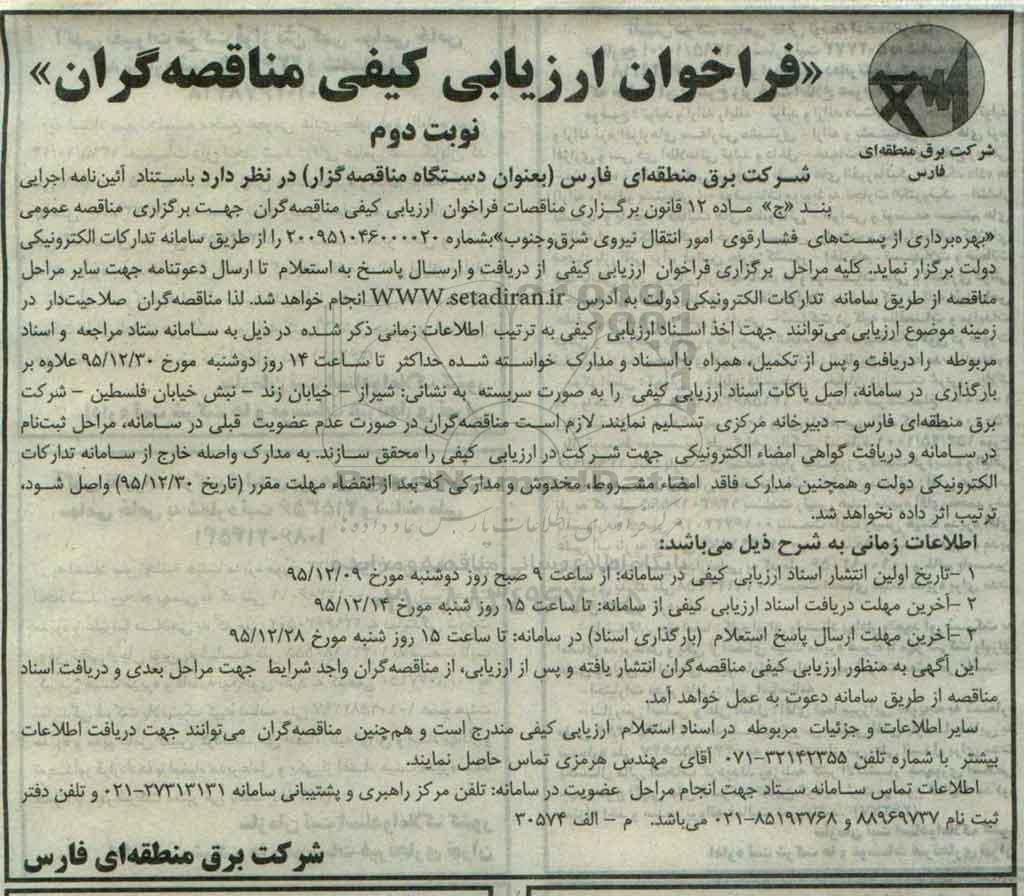 «فراخوان ارزیابی کیفی مناقصه‌گران»
نوبت دوم
شرکت برق منطقه‌ای
فارس
شرکت برق منطقه‌ای فارس (بعنوان دستگاه مناقصه‌گزار) در نظر دارد باستناد آئین‌نامه اجرایی
بند «ج» ماده ۱۲ قانون برگزاری مناقصات فراخوان ارزیابی کیفی مناقصه‌گران جهت برگزاری مناقصه عمومی
«بهره‌برداری از پست‌های فشارقوی امور انتقال نیروی شرق‌وجنوب»بشماره ۲۰۰۹۵۱۰۴۶۰۰۰۰۲۰ را از طریق سامانه تدارکات الکترونیکی
دولت برگزار نماید. کلیه مراحل برگزاری فراخوان ارزیابی کیفی از دریافت و ارسال پاسخ به استعلام تا ارسال دعوتنامه جهت سایر مراحل
مناقصه از طریق سامانه تدارکات الکترونیکی دولت به آدرس WWW.setadiran.ir انجام خواهد شد. لذا مناقصه‌گران صلاحیت‌دار در
زمینه موضوع ارزیابی می‌توانند جهت اخذ اسناد ارزیابی کیفی به ترتیب اطلاعات زمانی ذکر شده در ذیل به سامانه ستاد مراجعه و اسناد
مربوطه را دریافت و پس از تکمیل، همراه با اسناد و مدارک خواسته شده حداکثر تا ساعت ۱۴ روز دوشنبه مورخ ۹۵/۱۲/۳۰ علاوه بر
بارگذاری در سامانه، اصل پاکات اسناد ارزیابی کیفی را به صورت سربسته به نشانی: شیراز – خیابان زند – نبش خیابان فلسطین – شرکت
برق منطقه‌ای فارس – دبیرخانه مرکزی تسلیم نمایند. لازم است مناقصه‌گران در صورت عدم عضویت قبلی در سامانه، مراحل ثبت‌نام
در سامانه و دریافت گواهی امضاء الکترونیکی جهت شرکت در ارزیابی کیفی را محقق سازند. به مدارک واصله خارج از سامانه تدارکات
الکترونیکی دولت و همچنین مدارک فاقد امضاء مشروط، مخدوش و مدارکی که بعد از انقضاء مهلت مقرر (تاریخ ۹۵/۱۲/۳۰) واصل شود،
ترتیب اثر داده نخواهد شد.
اطلاعات زمانی به شرح ذیل می‌باشد:
۱ –تاریخ اولین انتشار اسناد ارزیابی کیفی در سامانه: از ساعت ۹ صبح روز دوشنبه مورخ ۹۵/۱۲/۰۹
۲ –آخرین مهلت دریافت اسناد ارزیابی کیفی از سامانه: تا ساعت ۱۵ روز شنبه مورخ ۹۵/۱۲/۱۴
۳ –آخرین مهلت ارسال پاسخ استعلام (بارگذاری اسناد) در سامانه: تا ساعت ۱۵ روز شنبه مورخ ۹۵/۱۲/۲۸
این آگهی به منظور ارزیابی کیفی مناقصه‌گران انتشار یافته و پس از ارزیابی، از مناقصه‌گران واجد شرایط جهت مراحل بعدی و دریافت اسناد
مناقصه از طریق سامانه دعوت به عمل خواهد آمد.
سایر اطلاعات و جزئیات مربوطه در اسناد استعلام ارزیابی کیفی مندرج است و هم‌چنین مناقصه‌گران می‌توانند جهت دریافت اطلاعات
بیشتر با شماره تلفن ۳۲۱۴۲۳۵۵–۰۷۱ آقای مهندس هرمزی تماس حاصل نمایند.
اطلاعات تماس سامانه ستاد جهت انجام مراحل عضویت در سامانه: تلفن مرکز راهبری و پشتیبانی سامانه ۲۷۳۱۳۱۳۱–۰۲۱ و تلفن دفتر
ثبت نام ۸۸۹۶۹۷۳۷ و ۸۵۱۹۳۷۶۸–۰۲۱ می‌باشد. م – الف ۳۰۵۷۴
شرکت برق منطقه‌ای فارس